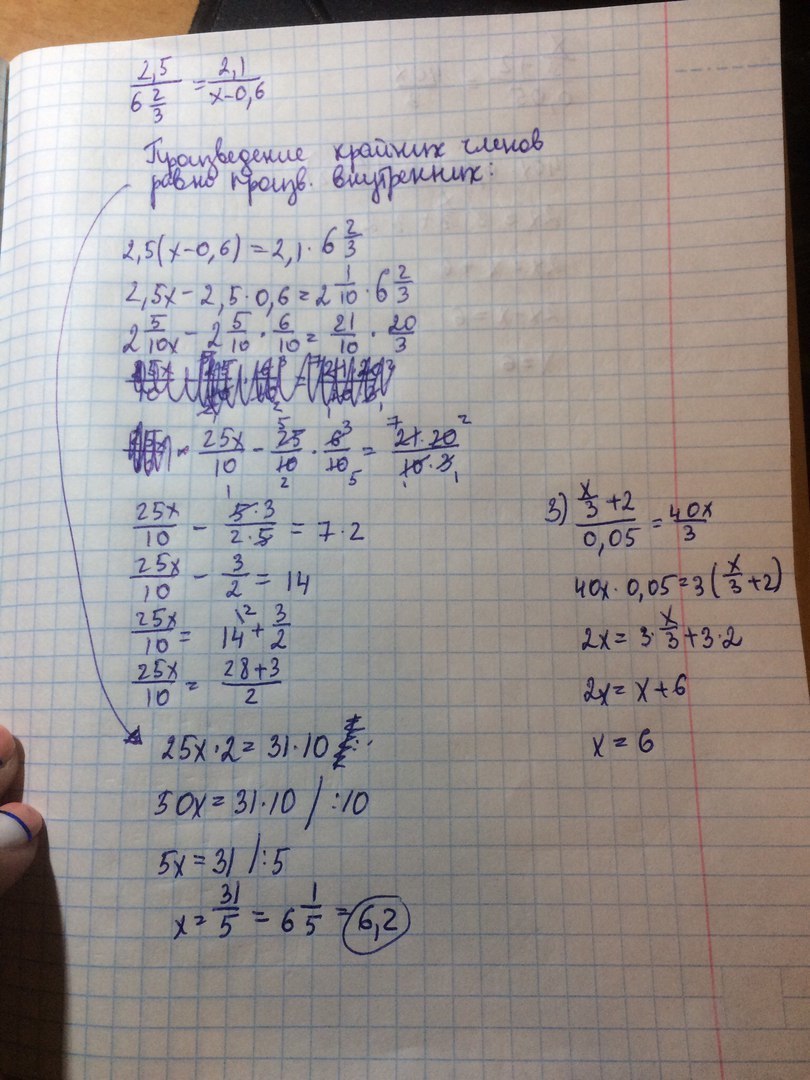 2,5/(6 2/3) = 2,1/(x-0,6)
Произведение крайних членов
равно произв. внутренних:
2,5(x-0,6) = 2,1 · 6 2/3
2,5x - 2,5 · 0,6 = 2 1/10 · 6 2/3
2 5/10x - 2 5/10 · 6/10 = 21/10 · 20/3
25x/10 - 25/10 · 6/10 = 21·20/10·3
25x/10 - 5·3/2·5 = 7·2
25x/10 - 3/2 = 14
25x/10 = 14 + 3/2
25x/10 = 28+3/2
25x·2 = 31·10
50x = 31·10 / :10
5x = 31 / :5
x = 31/5 = 6 1/5 = 6,2
3) (x/3 + 2)/0,05 = 40x/3
40x · 0,05 = 3(x/3 + 2)
2x = 3 · x/3 + 3·2
2x = x + 6
x = 6